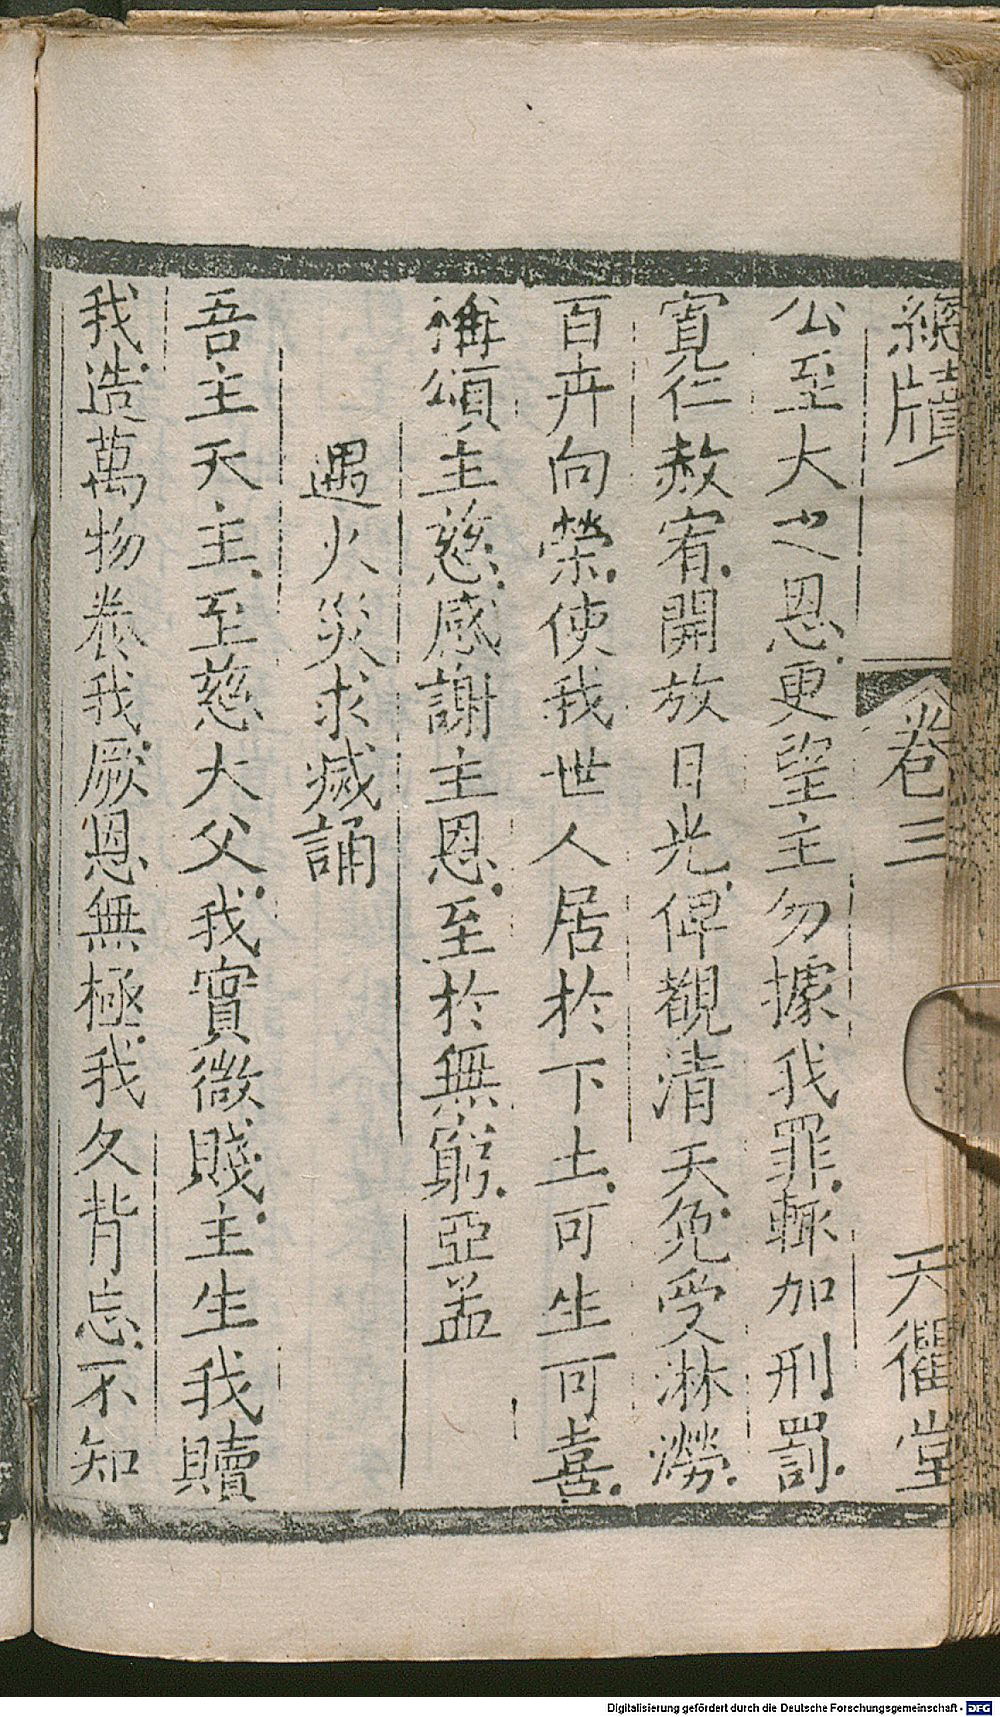 總牘 卷三 天衢堂
公至大之恩.更望主勿據我罪.輒加刑罰.
寬仁赦宥.開放日光.俾覩清天.免受淋澇.
百卉向榮.使我世人居於下土.可生可喜.
稱頌主慈.感謝主恩.至於無窮.亞孟
遇火災求滅誦
吾主天主.至慈大父.我實微賤.主生我贖
我.造萬物养我.厥恩無極.我久背忘.不知
Digitalisierung gefördert durch die Deutsche Forschungsgemeinschaft - DFG